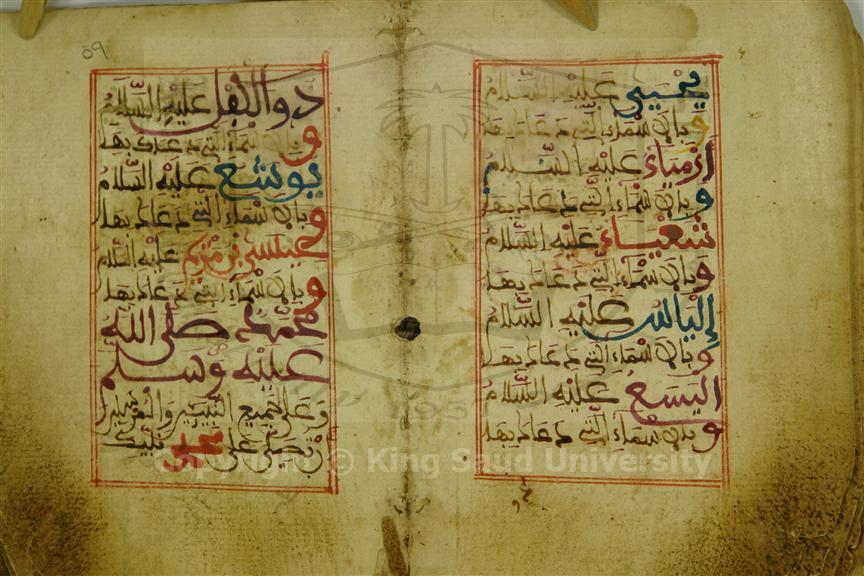 يحيى عليه السلام
و بالاسماء التي دعاك بها
أرمياء عليه السلام
و بالاسماء التي دعاك بها
شعياء عليه السلام
و بالاسماء التي دعاك بها
إلياس عليه السلام
و بالاسماء التي دعاك بها
اليسع عليه السلام
و بالاسماء التي دعاك بها
ذوالكفل عليه السلام
و بالاسماء التي دعاك بها
يوشع عليه السلام
و بالاسماء التي دعاك بها
عيسى بن مريم عليه السلام
و بالاسماء التي دعاك بها
محمد صلى الله
عليه وسلم
وعلى جميع النبيين والمرسلين
ان تصلي على محمد نبيك
٥٩
Copyright © King Saud University